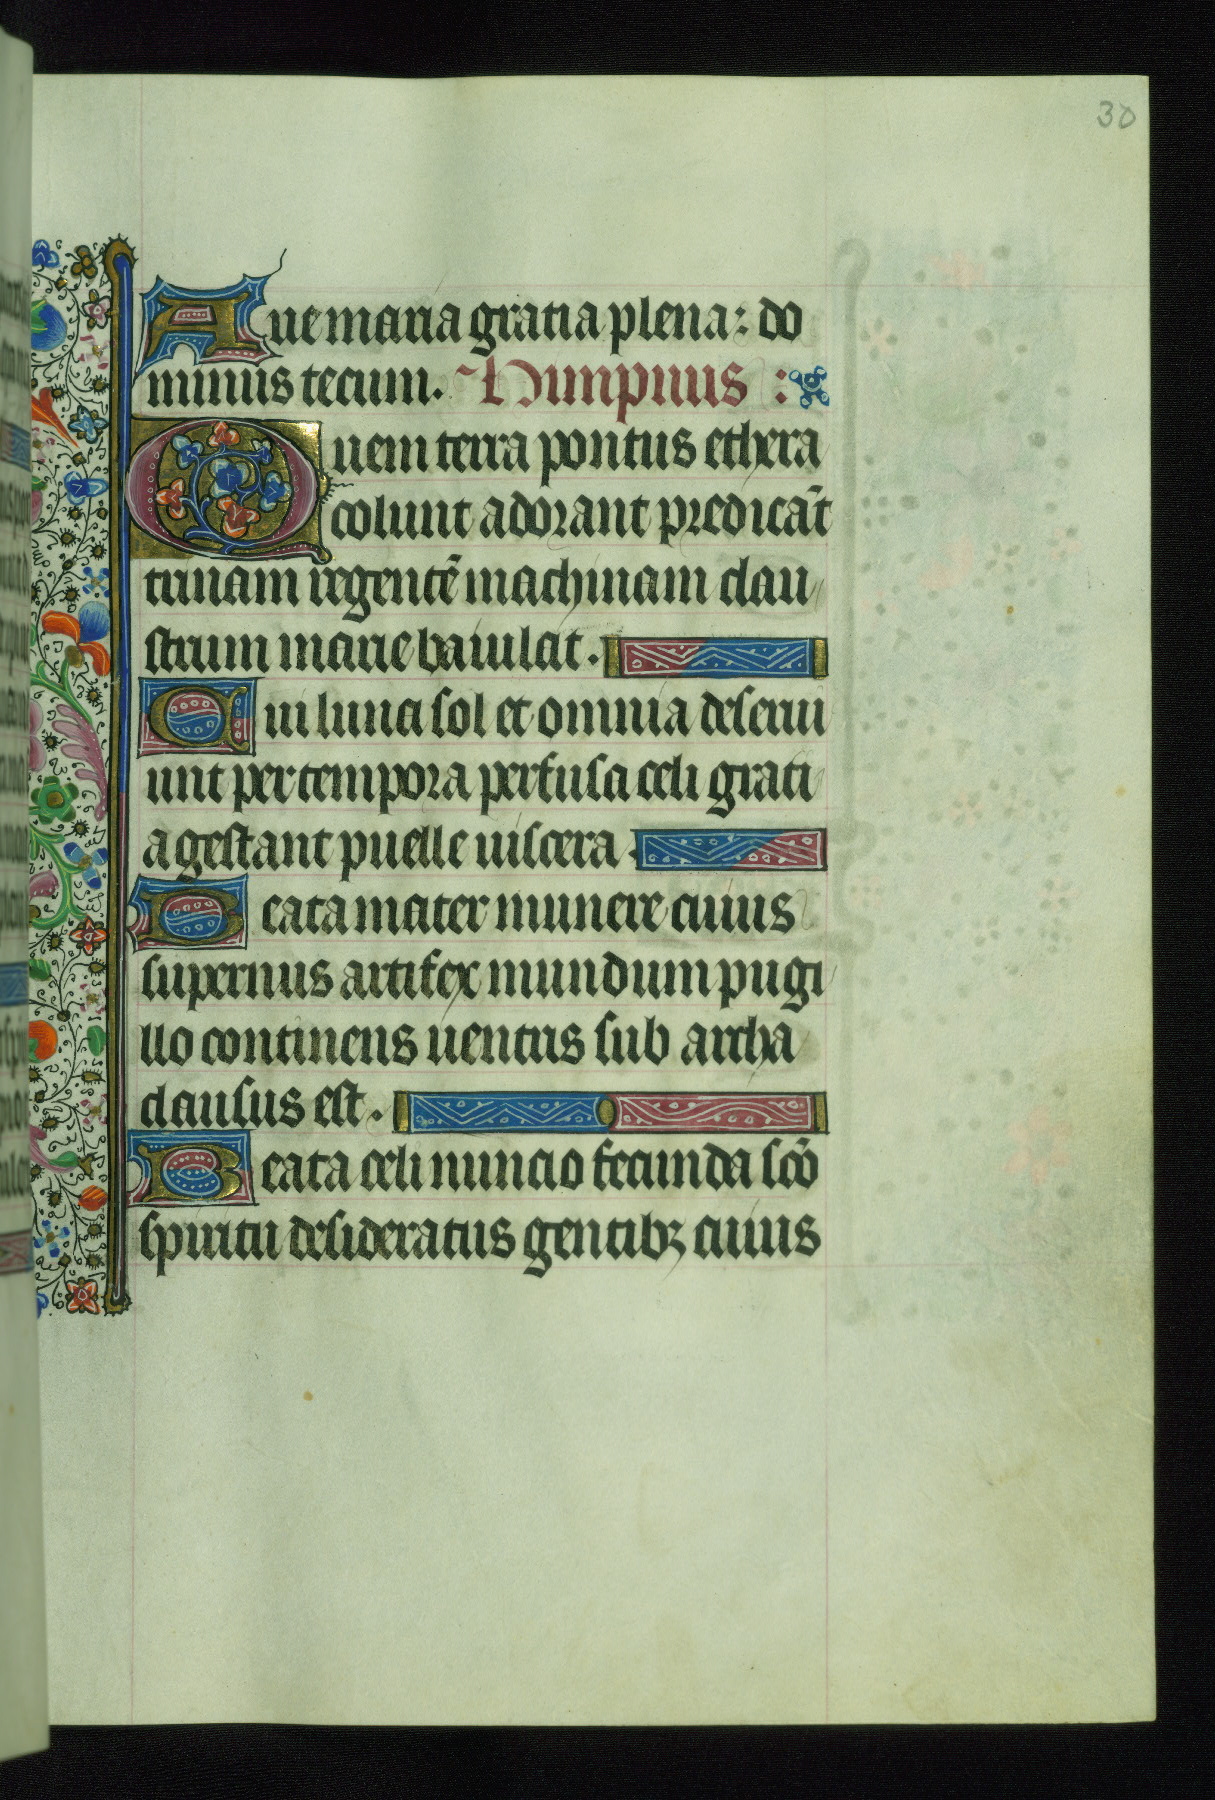 30
Aue maria gratia plena: do
minus tecum. Himpnus :
Quem terra pontus ethera
colunt adorant predicāt
trinam regentē machinam clau
strum marie baiulat.
Cui luna sol et omnia deserui
unt per tempora perfusa celi grati
a gestant puelle uiscera.
Beata mater munere cuius
supernus artifex mundum pugi
llo continens uentris sub archa
clausus est.
Beata celi nuncio fecunda scō
spiritu desideratus gentibꝫ cuius